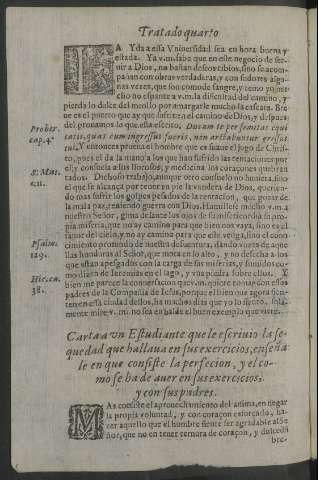 Tratado quarto
LA Yda a essa Vniuersidad sea en hora buena y
estada. Ya v.m. sabe que en este negocio de ser-
uir a Dios, no bastan desseos tibios, sino se acom-
pañan con obras verdaderas, y con sudores algu-
nas vezes, que son como de sangre, y temo yo mu-
cho no espante a v.m. la dificultad del camino, y
pierda lo dulce del meollo por amargarle mucho la cascara. Bie
ne es el puerto que ay que
el camino de Dios, y despues
del prouamos lo que esta escrito. Ducam te per semitas equi
tatis, quas cum ingressus fueris, non arctabuntur gressus
tui, Y entonces prueua el hombre que es suaue el jugo de Chris-
to, pues el da la mano a los que han sufrido las tentaciones por
el, y consuela a los llorosos, y medicina los coraçones quebran
tados. Dichoso trabajo, aunque otro consuelo no huuiera, sino
el que se alcança por tener en pie la vandera de Dios, querien-
do mas sufrir los golpes pesados de la tentacion, que gozar de
la mala paz, teniendo guerra con Dios. Humillese mucho v.m. a
nuestro Señor, gima delante los ojos de su misericordia su pro-
pria miseria, que no ay camino para que bien nos vaya, sino el fa-
uor del cielo, y no ay camino para que este venga, sino el cono-
cimiento profundo de nuestra desuentura, dando vozes de aque
llas honduras al Señor, que mora en lo alto, y no desecha a los
que estan apesgados con la carga de sus miserias, y sumidos co-
mo dizen de Ieremias en el lago, y vna piedra sobre ellos. Y
bien me parece la conuersacion que v.m. quiere tomar con essos
padres de la Compañia de Iesus, porque el bien que agora tie-
nen en essa ciudad dellos, ha muchos dias que yo lo siento, sola-
mente mire v.m. no sea en balde el buen exemplo que viere.
Prouer.
cap. 4.
S. Mat.
c. 11.
Psalm.
129.
Hie. ca.
38.
Carta a vn Estudiante que le escriuio la se-
quedad que hallaua en sus exercicios, enseña
le en que consiste la perfecion, y el co-
mo se ha de auer en sus exercicios,
y con sus padres.
MAs consiste el aprouechamiento del anima, en negar
la propia voluntad, y con coraçon esforçado, ha-
zer aquello que el hombre siente ser agradable al Se
ñor, que no en tener ternura de coraçon, y dulcedū
bre-